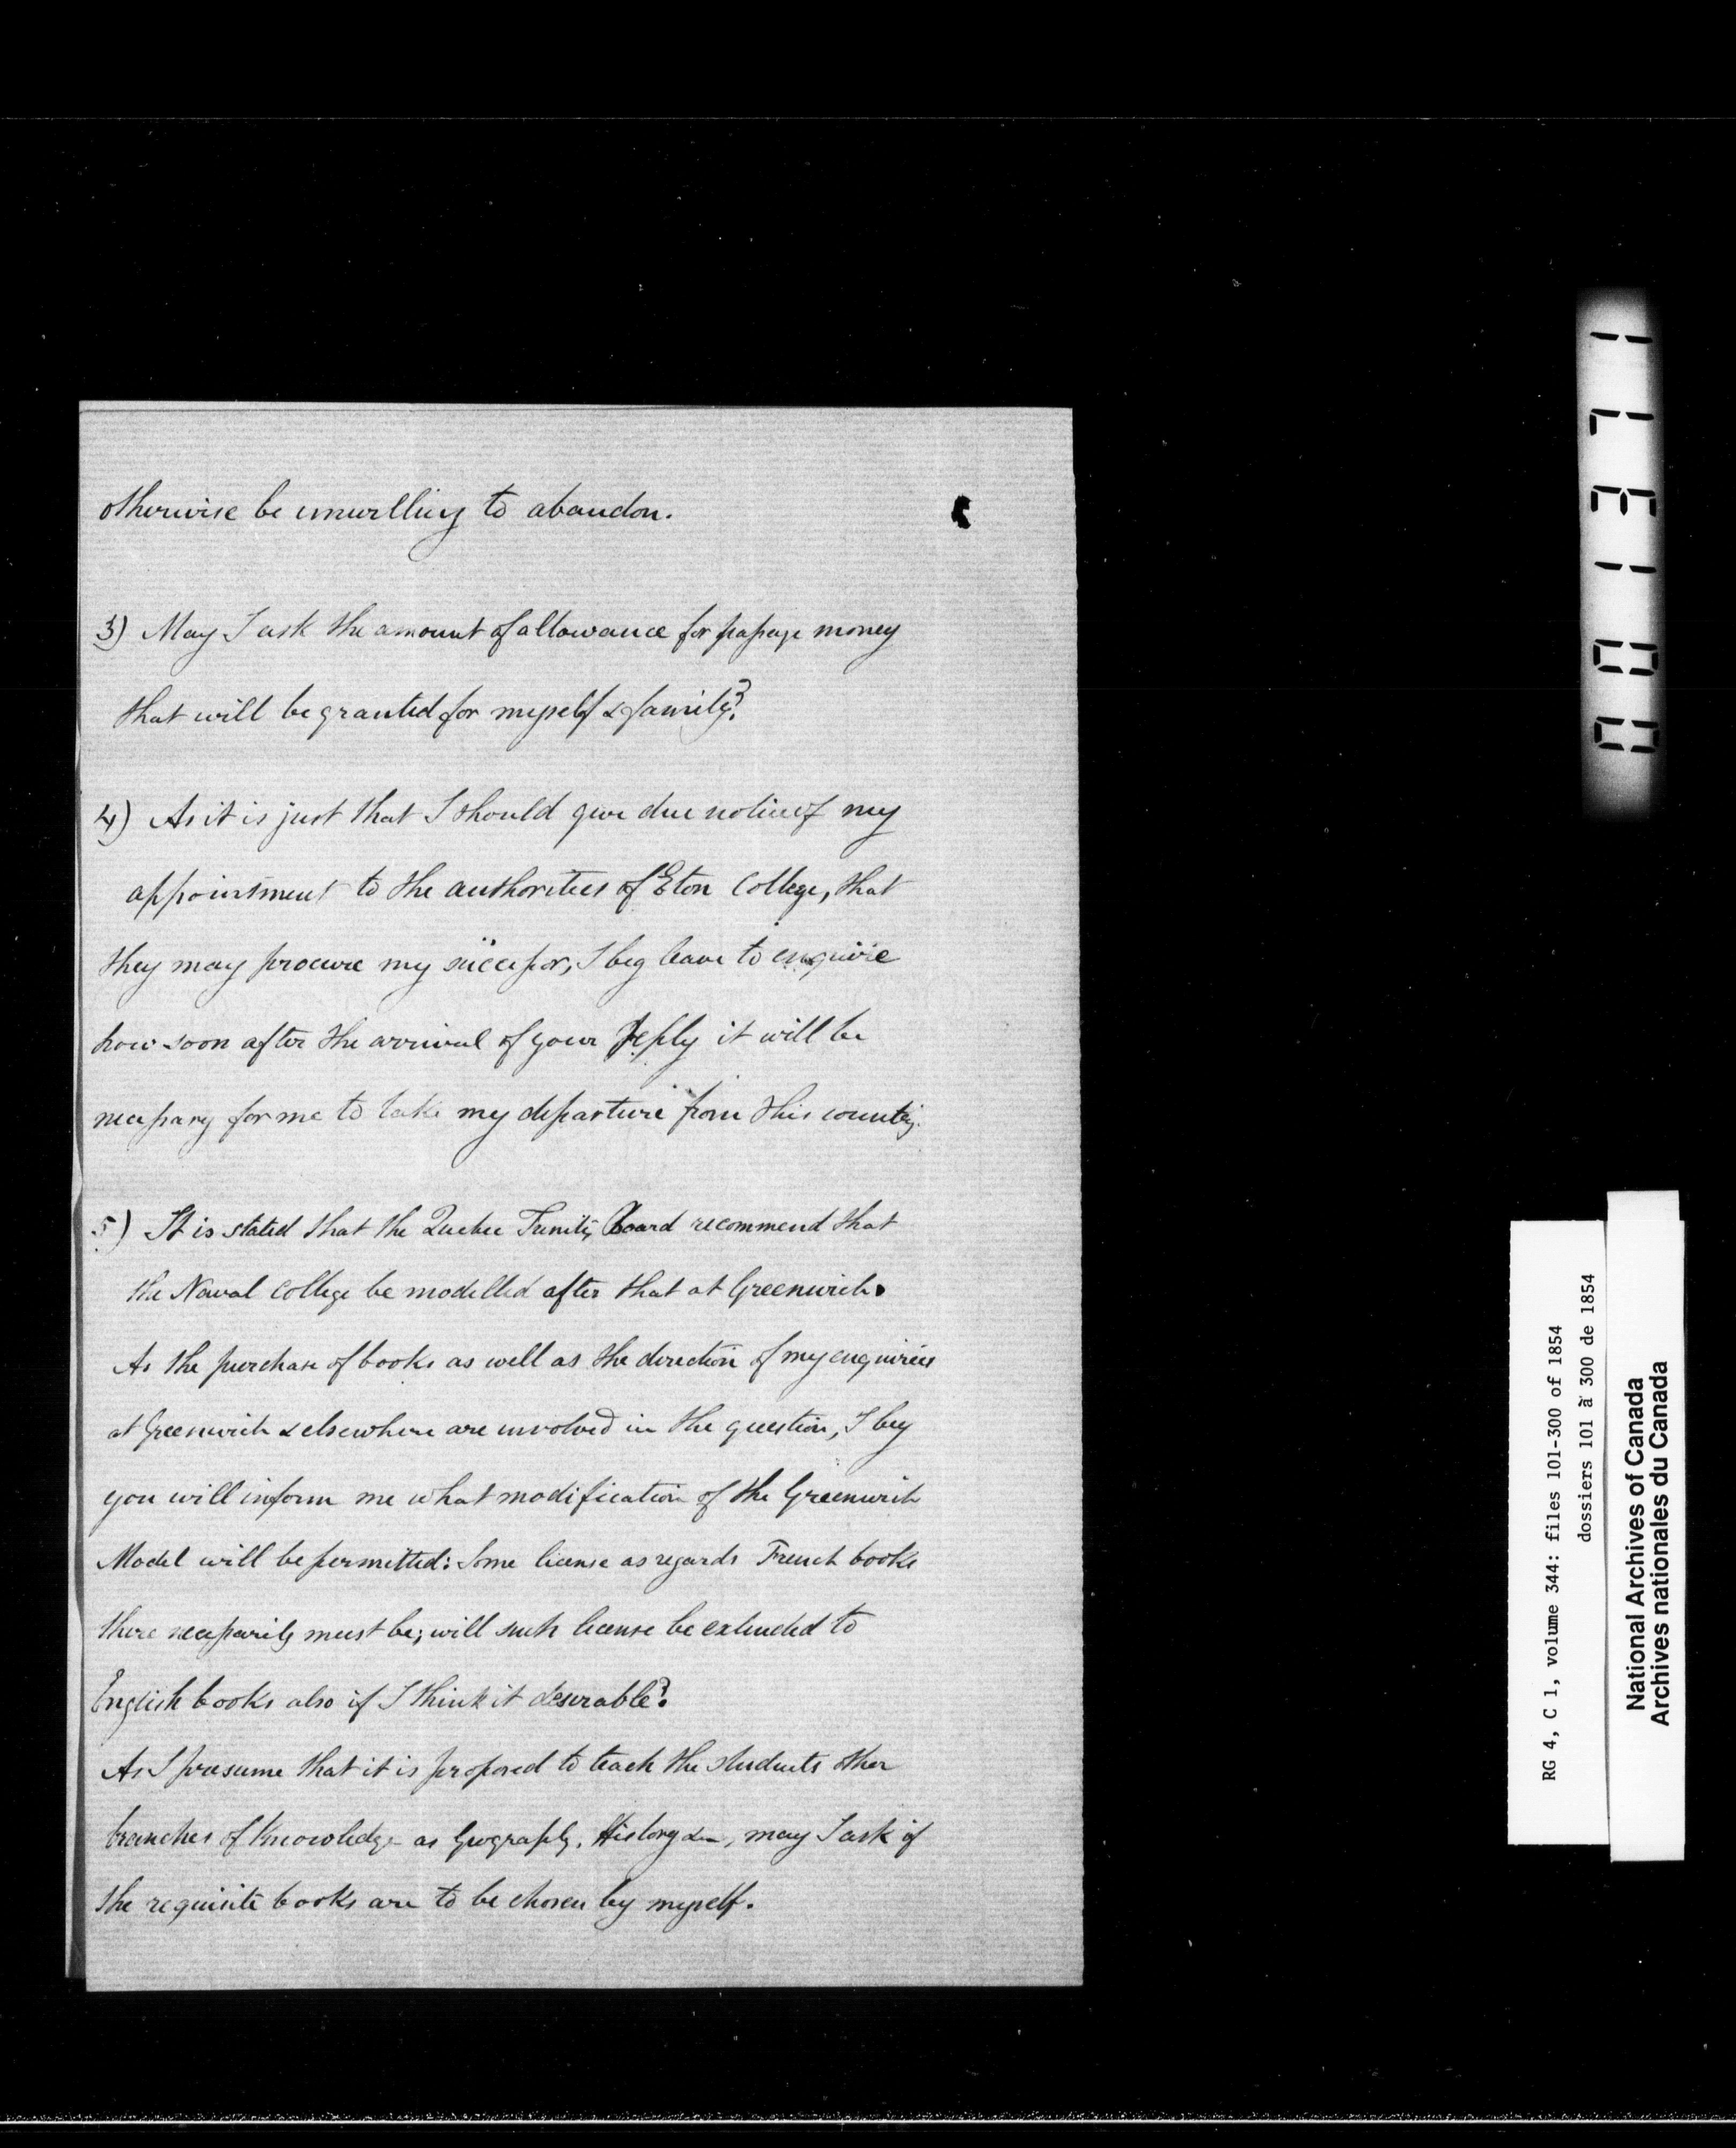 otherwise be unwilling to abandon.
3) May I ask the amount of allowance for passage money
that will be granted for myself & family?
4) As it is just that I should give due notice of my
appointment to the authorities of Eton College, that
they may procure my successor, I beg leave to enquire
how soon after the arrival of your reply it will be
necessary for me to take my departure from this country.
5) It is stated that the Quebec Trinity Board recommend that
the Naval College be modelled after that at Greenwich.
As the purchase of books as well as the direction of my enquiries
at Greenwich & elsewhere are involved in the question, I beg
you will inform me what modification of the Greenwich
Model will be permitted: Some license as regards French books
there necessarily must be; will such license be extended to
English books also if I think it desirable?
As I presume that it is proposed to teach the students other
branches of Knowledge as Geography, History &c, may I ask if
the requisite books are to be chosen by myself.
001371
RG 4, C 1, volume 344: files 101-300 of 1854
dossiers 101 à 300 de 1854
National Archives of Canada
Archives nationales du Canada